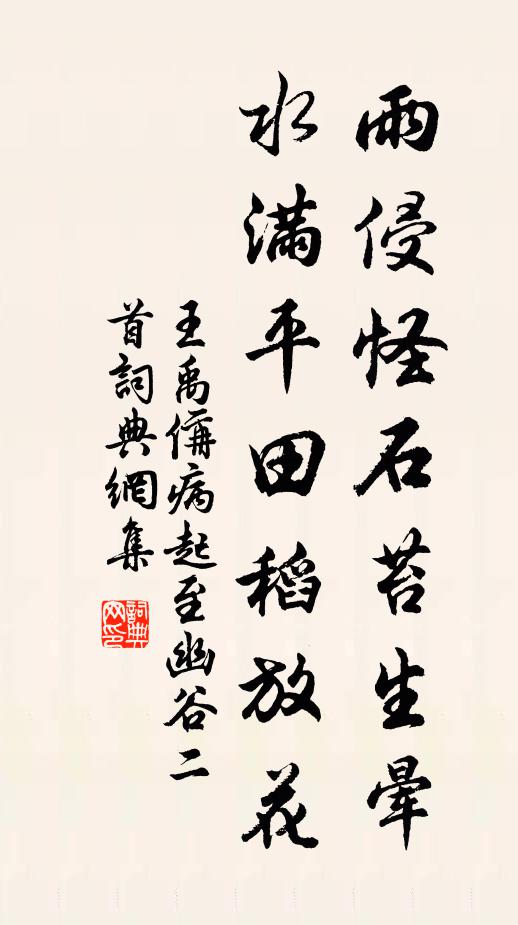 雨侵怪石苔生暈
水滿平田稻放花
王禹偁病起至幽谷二
首詞典網集
詞典
网印